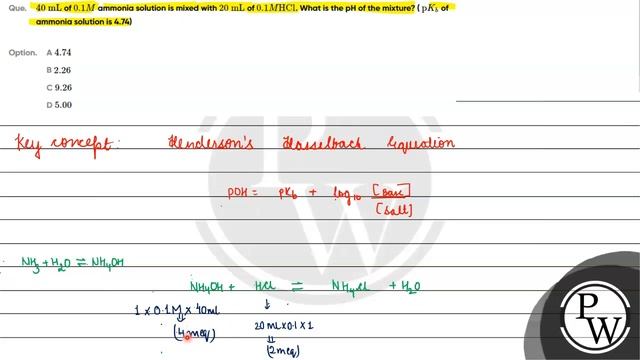 Que. 40 mL of 0.1M ammonia solution is mixed with 20 mL of 0.1MHCl. What is the pH of the mixture? ( pKb of
ammonia solution is 4.74)
Option. A 4.74
B 2.26
C 9.26
D 5.00
Key concept : Henderson's Hasselbach Equation
pOH = pKb + log10 [Base]/[Salt]
NH3 + H2O ⇌ NH4OH
NH4OH + HCl ⇌ NH4Cl + H2O
1 x 0.1M x 40ml
(4meq)
20 mL x 0.1 x 1
(2meq)
PW